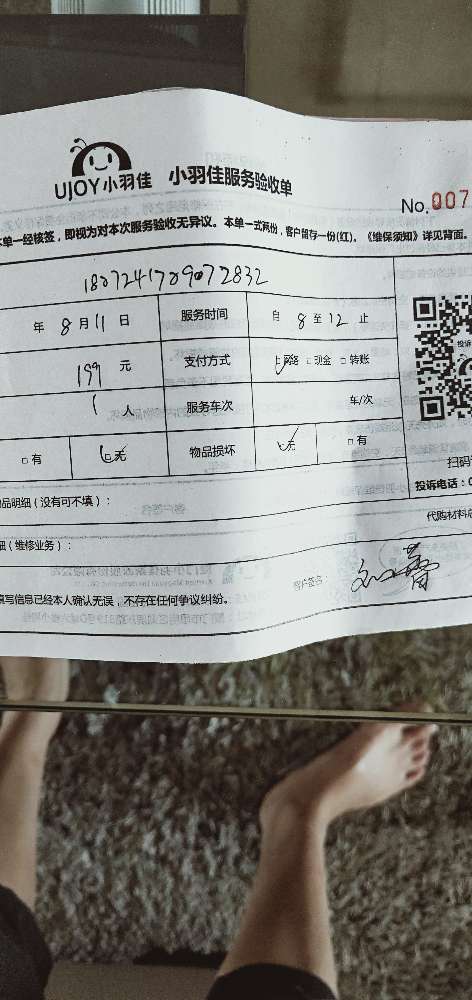 UJOY 小羽佳 小羽佳服务验收单
No.007
本单一经核签，即视为对本次服务验收无异议。本单一式两份，客户留存一份(红)。《维保须知》详见背面。
年 8 月 11 日 服务时间 自 8 至 12 止
199 元 支付方式 □网络 □现金 □转账
1 人 服务车次 车/次
□有 □无 物品损坏 □无 □有
投诉
扫码
投诉电话：0
品明细（没有可不填）：
代购材料总
细（维修业务）：
填写信息已经本人确认无误，不存在任何争议纠纷。
客户签名：